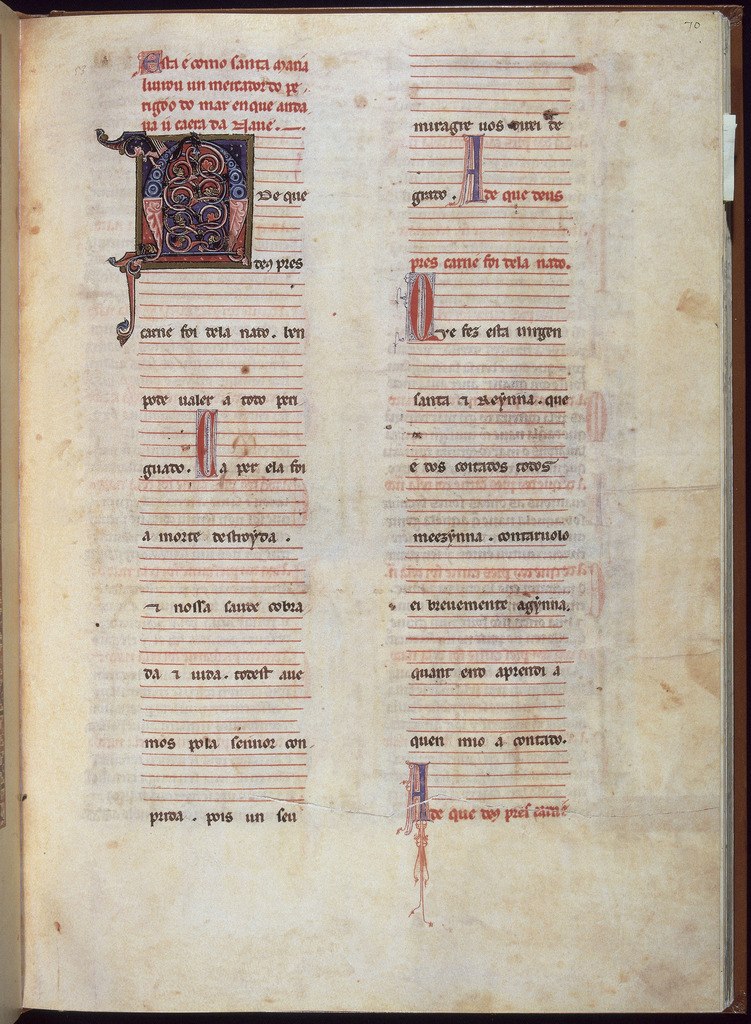 Esta é como santa maria
liurou un mercador do pe
rigoo do mar en que anda
ua u caera da naue.
A De que
deꝯ pres
carne foi dela nado. ben
pode ualer a todo peri
guado. Ca per ela foi
a morte destroyda.
⁊ nossa saude cobra
da ⁊ uida. todest aue
mos pola sennor con
prida. pois un seu
70
miragre uos direi de
grado. A de que deus
pres carne foi dela nado.
Que fez esta uirgen
santa ⁊ Reynna. que
é dos coitados todos
meezynna. contaruolo
ei breuemente agynna.
quant end aprendi a
quen mio a contado.
A de que deꝯ pres carne